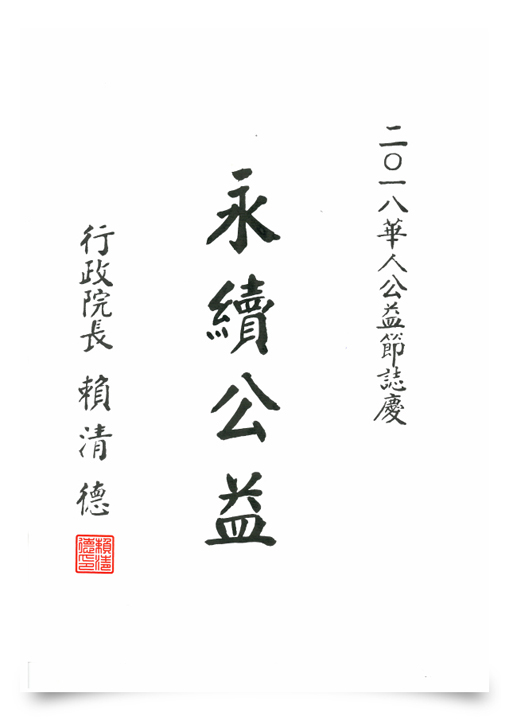 二〇一八華人公益節誌慶
永續公益
行政院長 賴清德
賴清德印